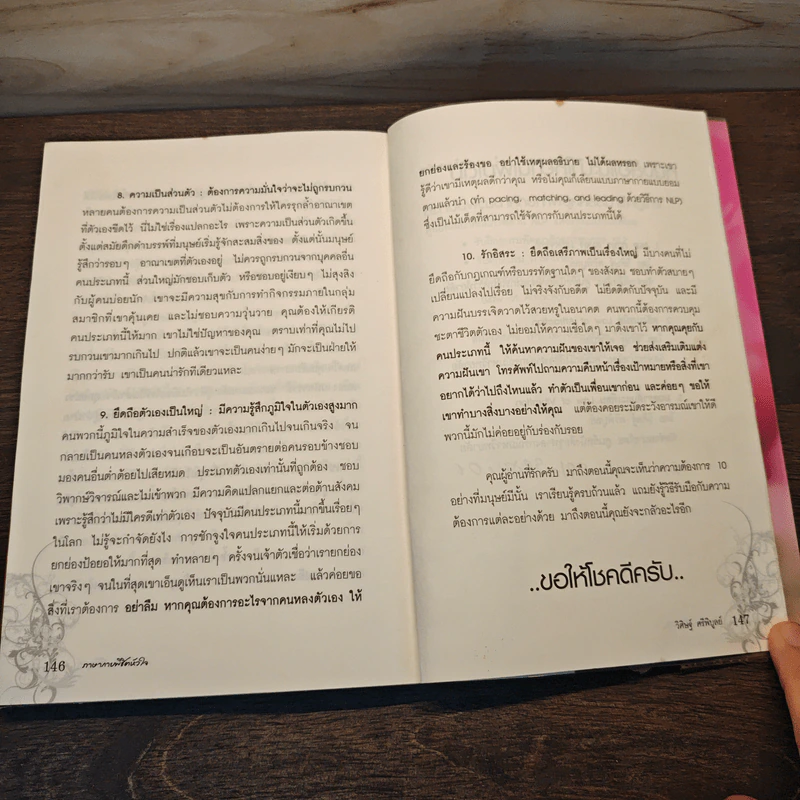 8. ความเป็นส่วนตัว : ต้องการความมั่นใจว่าจะไม่ถูกรบกวน
หลายคนต้องการความเป็นส่วนตัวไม่ต้องการให้ใครรุกล้ำอาณาเขต
ที่ตัวเองขีดไว้ นี่ไม่ใช่เรื่องแปลกอะไร เพราะความเป็นส่วนตัวเกิดขึ้น
ตั้งแต่สมัยดึกดำบรรพ์ที่มนุษย์เริ่มรู้จักสะสมสิ่งของ ตั้งแต่นั้นมนุษย์
รู้สึกว่ารอบๆ อาณาเขตที่ตัวเองอยู่ ไม่ควรถูกรบกวนจากบุคคลอื่น
คนประเภทนี้ ส่วนใหญ่มักชอบเก็บตัว หรือชอบอยู่เงียบๆ ไม่สุงสิง
กับผู้คนบ่อยนัก เขาจะมีความสุขกับการทำกิจกรรมภายในกลุ่ม
สมาชิกที่เขาคุ้นเคย และไม่ชอบความวุ่นวาย คุณต้องให้เกียรติ
คนประเภทนี้ให้มาก เขาไม่ใช่ปัญหาของคุณ ตราบเท่าที่คุณไม่ไป
รบกวนเขามากเกินไป ปกติแล้วเขาจะเป็นคนง่ายๆ มักจะเป็นฝ่ายให้
มากกว่ารับ เขาเป็นคนน่ารักทีเดียวแหละ
9. ยึดถือตัวเองเป็นใหญ่ : มีความรู้สึกภูมิใจในตัวเองสูงมาก
คนพวกนี้ภูมิใจในความสำเร็จของตัวเองมากเกินไปจนเกินจริง จน
กลายเป็นคนหลงตัวเองจนเกือบจะเป็นอันตรายต่อคนรอบข้างชอบ
มองคนอื่นต่ำต้อยไปเสียหมด ประเภทตัวเองเท่านั้นที่ถูกต้อง ชอบ
วิพากษ์วิจารณ์และไม่เข้าพวก มีความคิดแปลกแยกและต่อต้านสังคม
เพราะรู้สึกว่าไม่มีใครดีเท่าตัวเอง ปัจจุบันมีคนประเภทนี้มากขึ้นเรื่อยๆ
ในโลก ไม่รู้จะกำจัดยังไง การชักจูงใจคนประเภทนี้ให้เริ่มด้วยการ
ยกยอปอปั้นให้มากที่สุด ทำหลายๆ ครั้งจนเจ้าตัวเชื่อว่าเรายกย่อง
เขาจริงๆ จนในที่สุดเขาเอ็นดูเห็นเราเป็นพวกนั่นแหละ แล้วค่อยขอ
สิ่งที่เราต้องการ อย่าลืม หากคุณต้องการอะไรจากคนหลงตัวเอง ให้
146 ภาษากายพิชิตหัวใจ
ยกย่องและร้องขอ อย่าใช้เหตุผลอธิบาย ไม่ได้ผลหรอก เพราะเขา
รู้ดีว่าเขามีเหตุผลดีกว่าคุณ หรือไม่คุณก็เลียนแบบภาษากายแบบยอม
ตามแล้วนำ (ทำ pacing, matching, and leading ด้วยวิธีการ NLP)
ซึ่งเป็นไม้เด็ดที่สามารถใช้จัดการกับคนประเภทนี้ได้
10. รักอิสระ : ยึดถือเสรีภาพเป็นเรื่องใหญ่ มีบางคนที่ไม่
ยึดถือกับกฎเกณฑ์หรือบรรทัดฐานใดๆ ของสังคม ชอบทำตัวสบายๆ
เปลี่ยนแปลงไปเรื่อย ไม่จริงจังกับอดีต ไม่ยึดติดกับปัจจุบัน และมี
ความฝันบรรเจิดวาดไว้สวยหรูในอนาคต คนพวกนี้ต้องการควบคุม
ชะตาชีวิตตัวเอง ไม่ยอมให้ความเชื่อใดๆ มาดึงเขาไว้ หากคุณคุยกับ
คนประเภทนี้ ให้ค้นหาความฝันของเขาให้เจอ ช่วยส่งเสริมเติมแต่ง
ความฝันเขา โทรศัพท์ไปถามความคืบหน้าเรื่องเป้าหมายหรือสิ่งที่เขา
อยากได้ว่าไปถึงไหนแล้ว ทำตัวเป็นเพื่อนเขาก่อน และค่อยๆ ขอให้
เขาทำบางสิ่งบางอย่างให้คุณ แต่ต้องคอยระมัดระวังอารมณ์เขาให้ดี
พวกนี้มักไม่ค่อยอยู่กับร่องกับรอย
คุณผู้อ่านที่รักครับ มาถึงตอนนี้คุณจะเห็นว่าความต้องการ 10
อย่างที่มนุษย์มีนั้น เราเรียนรู้ครบถ้วนแล้ว แถมยังรู้วิธีรับมือกับความ
ต้องการแต่ละอย่างด้วย มาถึงตอนนี้คุณยังจะกลัวอะไรอีก
..ขอให้โชคดีครับ..
วิศิษฐ์ ศรีพิบูลย์ 147